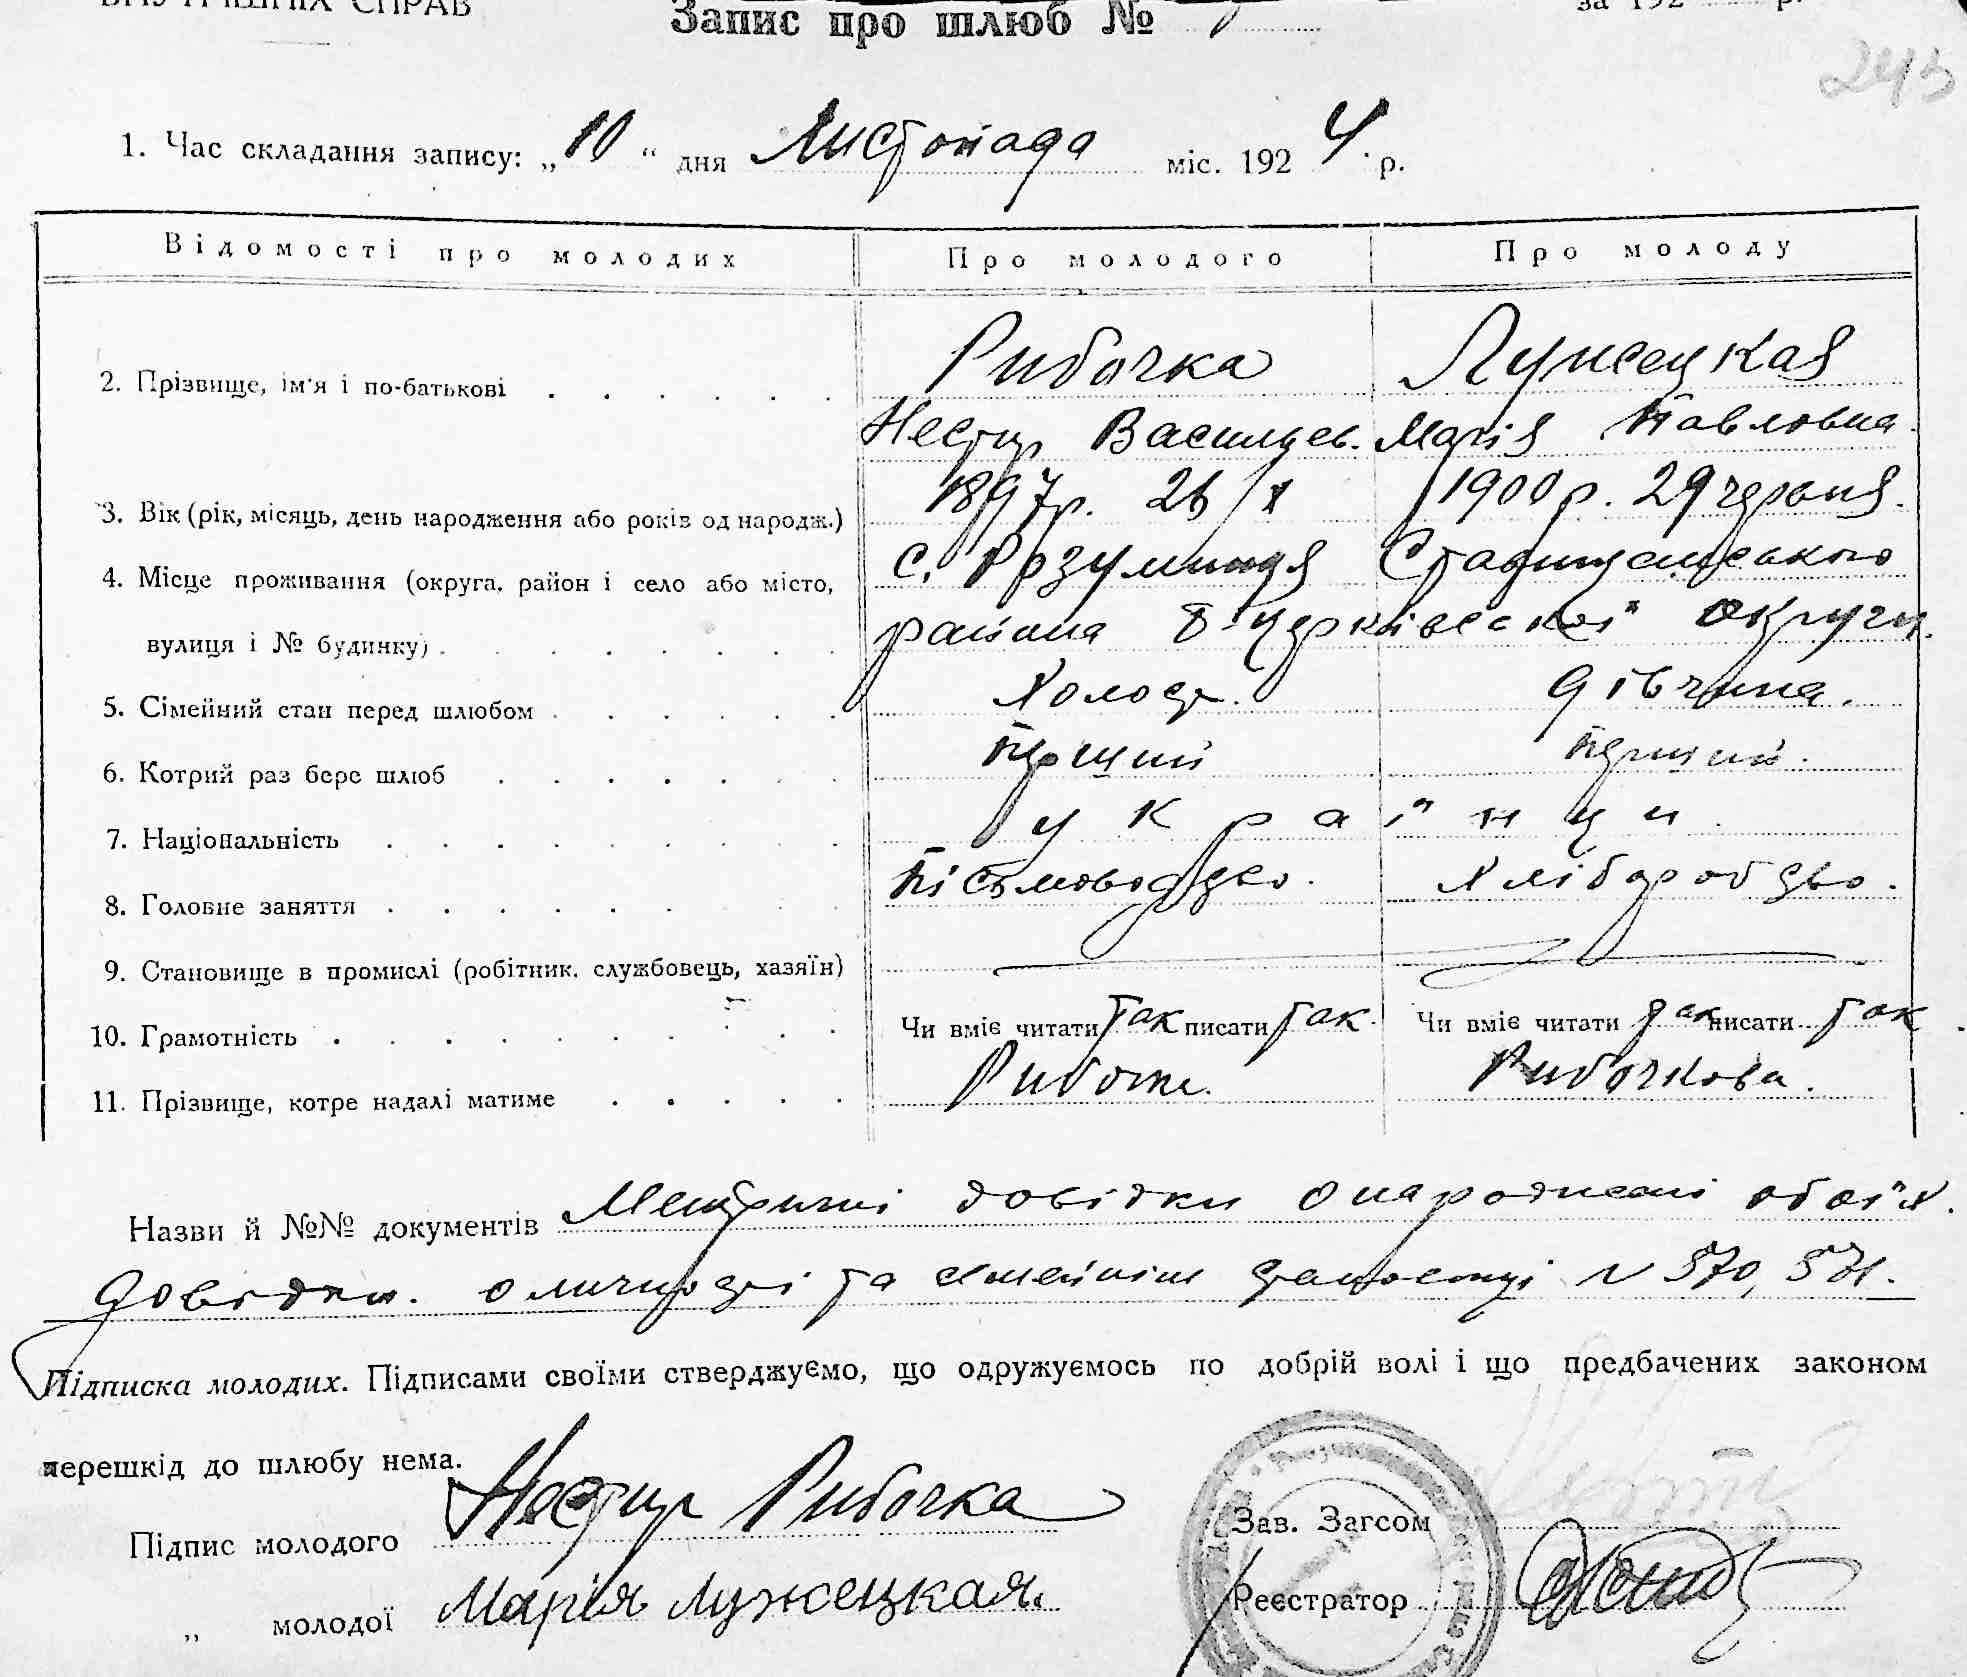 ВНУТРІШНІХ СПРАВ
Запис про шлюб №
за 192 р.
243
1. Час складання запису: „ 10 “ дня Листопада міс. 192 4 р.
Відомості про молодих Про молодого Про молоду
2. Прізвище, ім'я і по-батькові Рибочка Лужецкая
Нестир Васильев. Марія Павловна
3. Вік (рік, місяць, день народження або років од народж.) 1897 р. 1900 р. 29 червня.
4. Місце проживання (округа, район і село або місто, с. Розумниця Ставищанського
вулиця і № будинку) района Б-Церківської округи.
5. Сімейний стан перед шлюбом Холост. дівчина.
6. Котрий раз бере шлюб перший перший.
7. Національність українци.
8. Головне заняття письмоводство. хліборобство.
9. Становище в промислі (робітник, службовець, хазяїн)
10. Грамотність Чи вміє читати так писати так. Чи вміє читати так писати так
11. Прізвище, котре надалі матиме Рибочка. Рибочкова.
Назви й №№ документів Метричні довідки о народженні обоїх.
Довідки. о личности та семейнім N 570, 571.
Підписка молодих. Підписами своїми стверджуємо, що одружуємось по добрій волі і що предбачених законом
перешкід до шлюбу нема.
Підпис молодого Нестир Рибочка
Зав. Загсом
„ молодої Марія Лужецкая.
Реєстратор